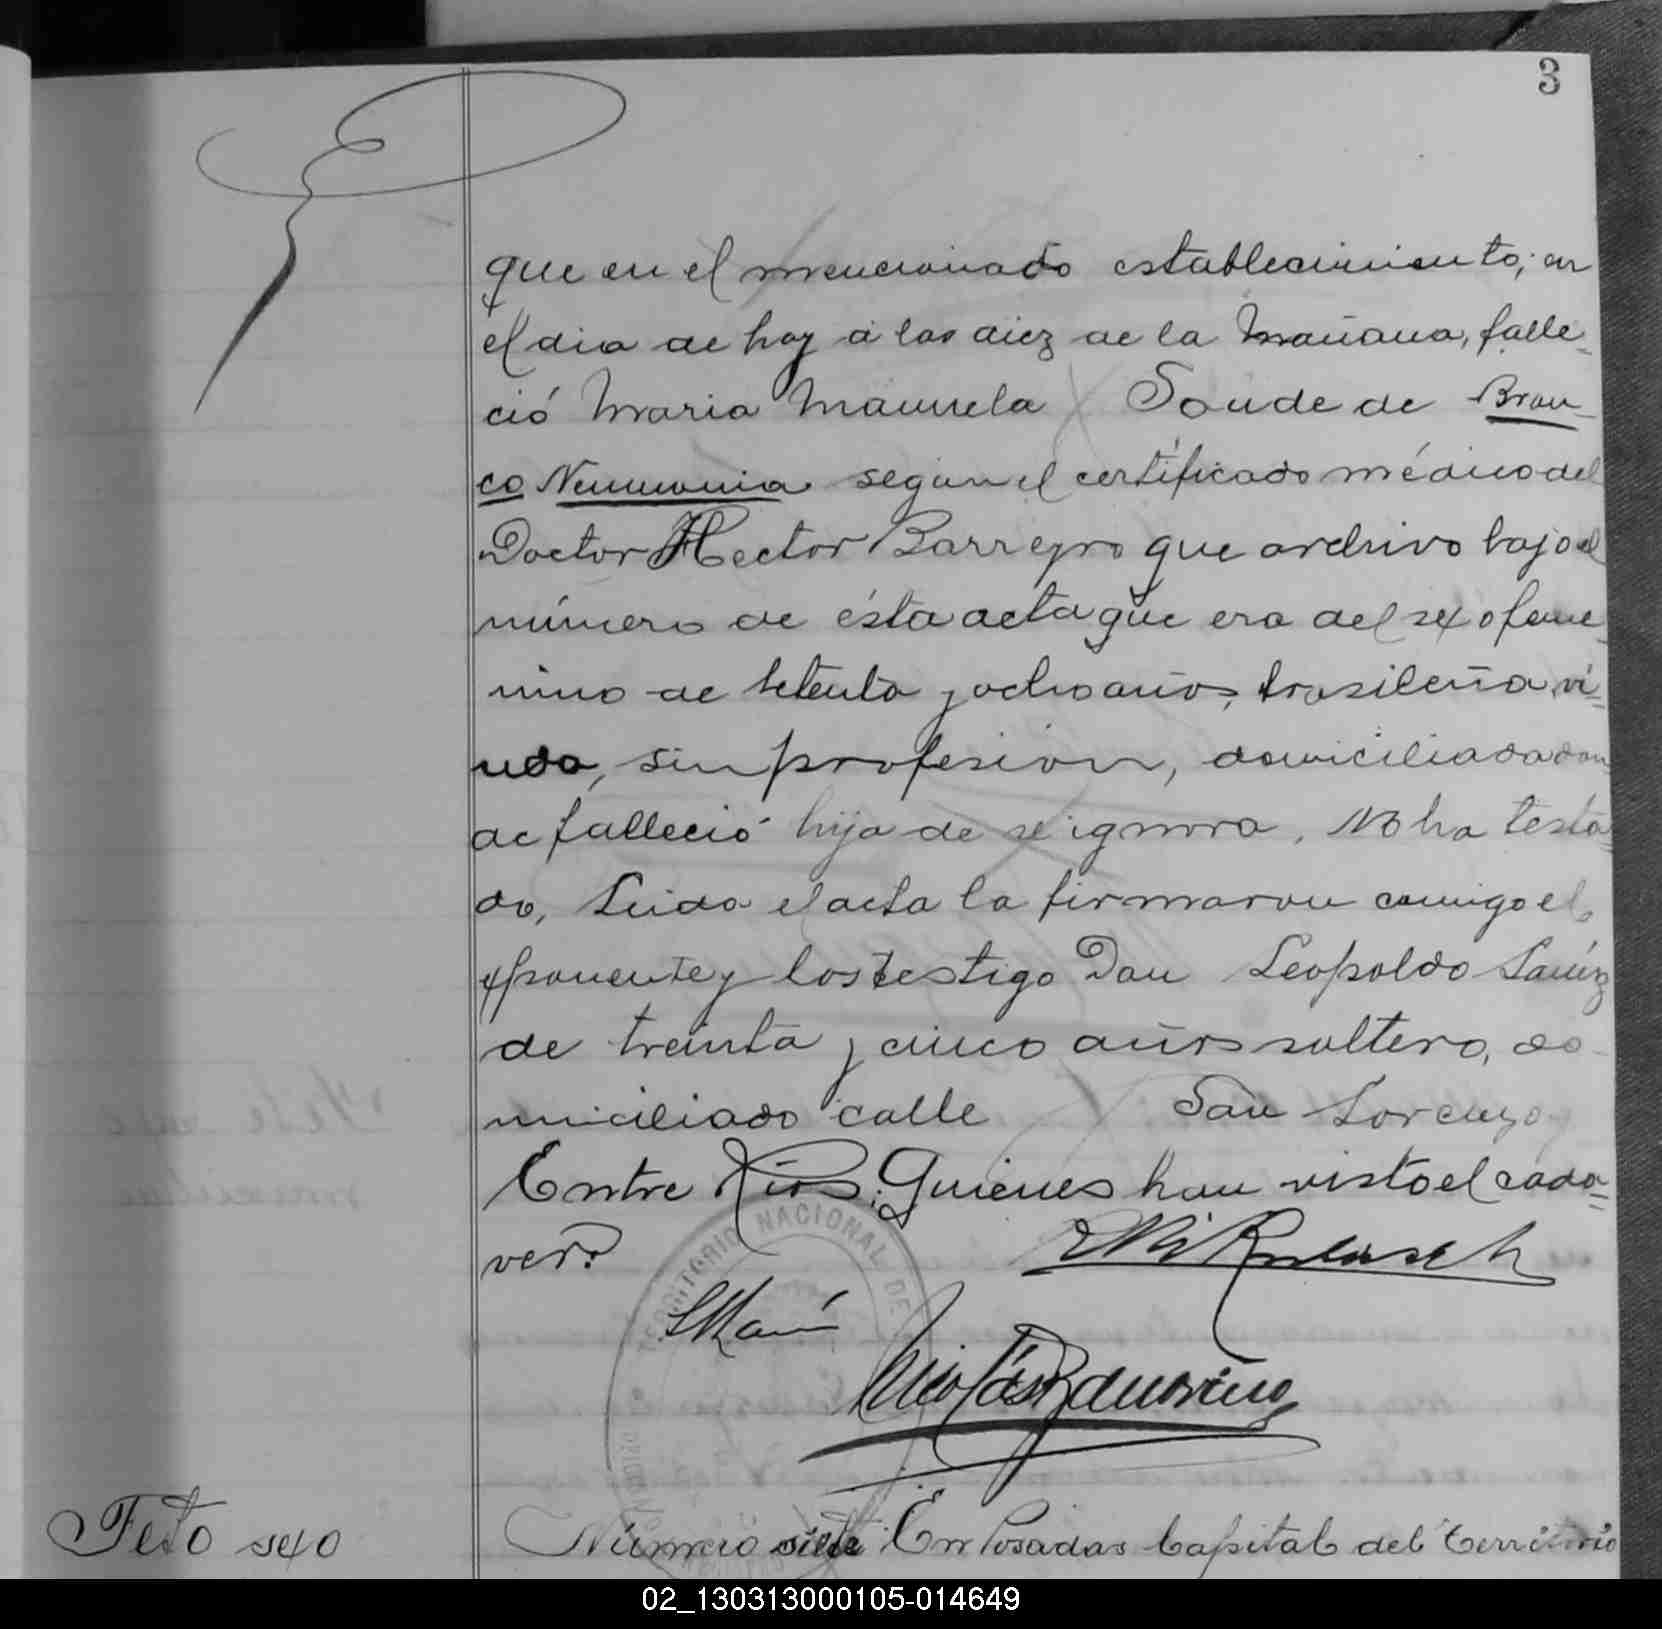 3
que en el mencionado establecimiento, en
el dia de hoy á las diez de la mañana, falle-
ció Maria Manuela Soude de Bron-
co Neumonia segun el certificado médico del
Doctor Hector Barreyro que archivo bajo el
número de ésta acta que era del sexo feme-
nino de setenta y ocho años, brasileña vi-
uda, sin profesion, domiciliada don
de falleció hija de se ignora. No ha testa-
do, Leida el acta la firmaron conmigo el
exponente y los testigo Don Leopoldo
de treinta y cinco años soltero, do-
miciliado calle San Lorenzo y
Entre Rios. Quienes han visto el cada-
ver.
TERRITORIO NACIONAL DE
Feto sexo
Número siete En Posadas Capital del Territorio
02_130313000105-014649